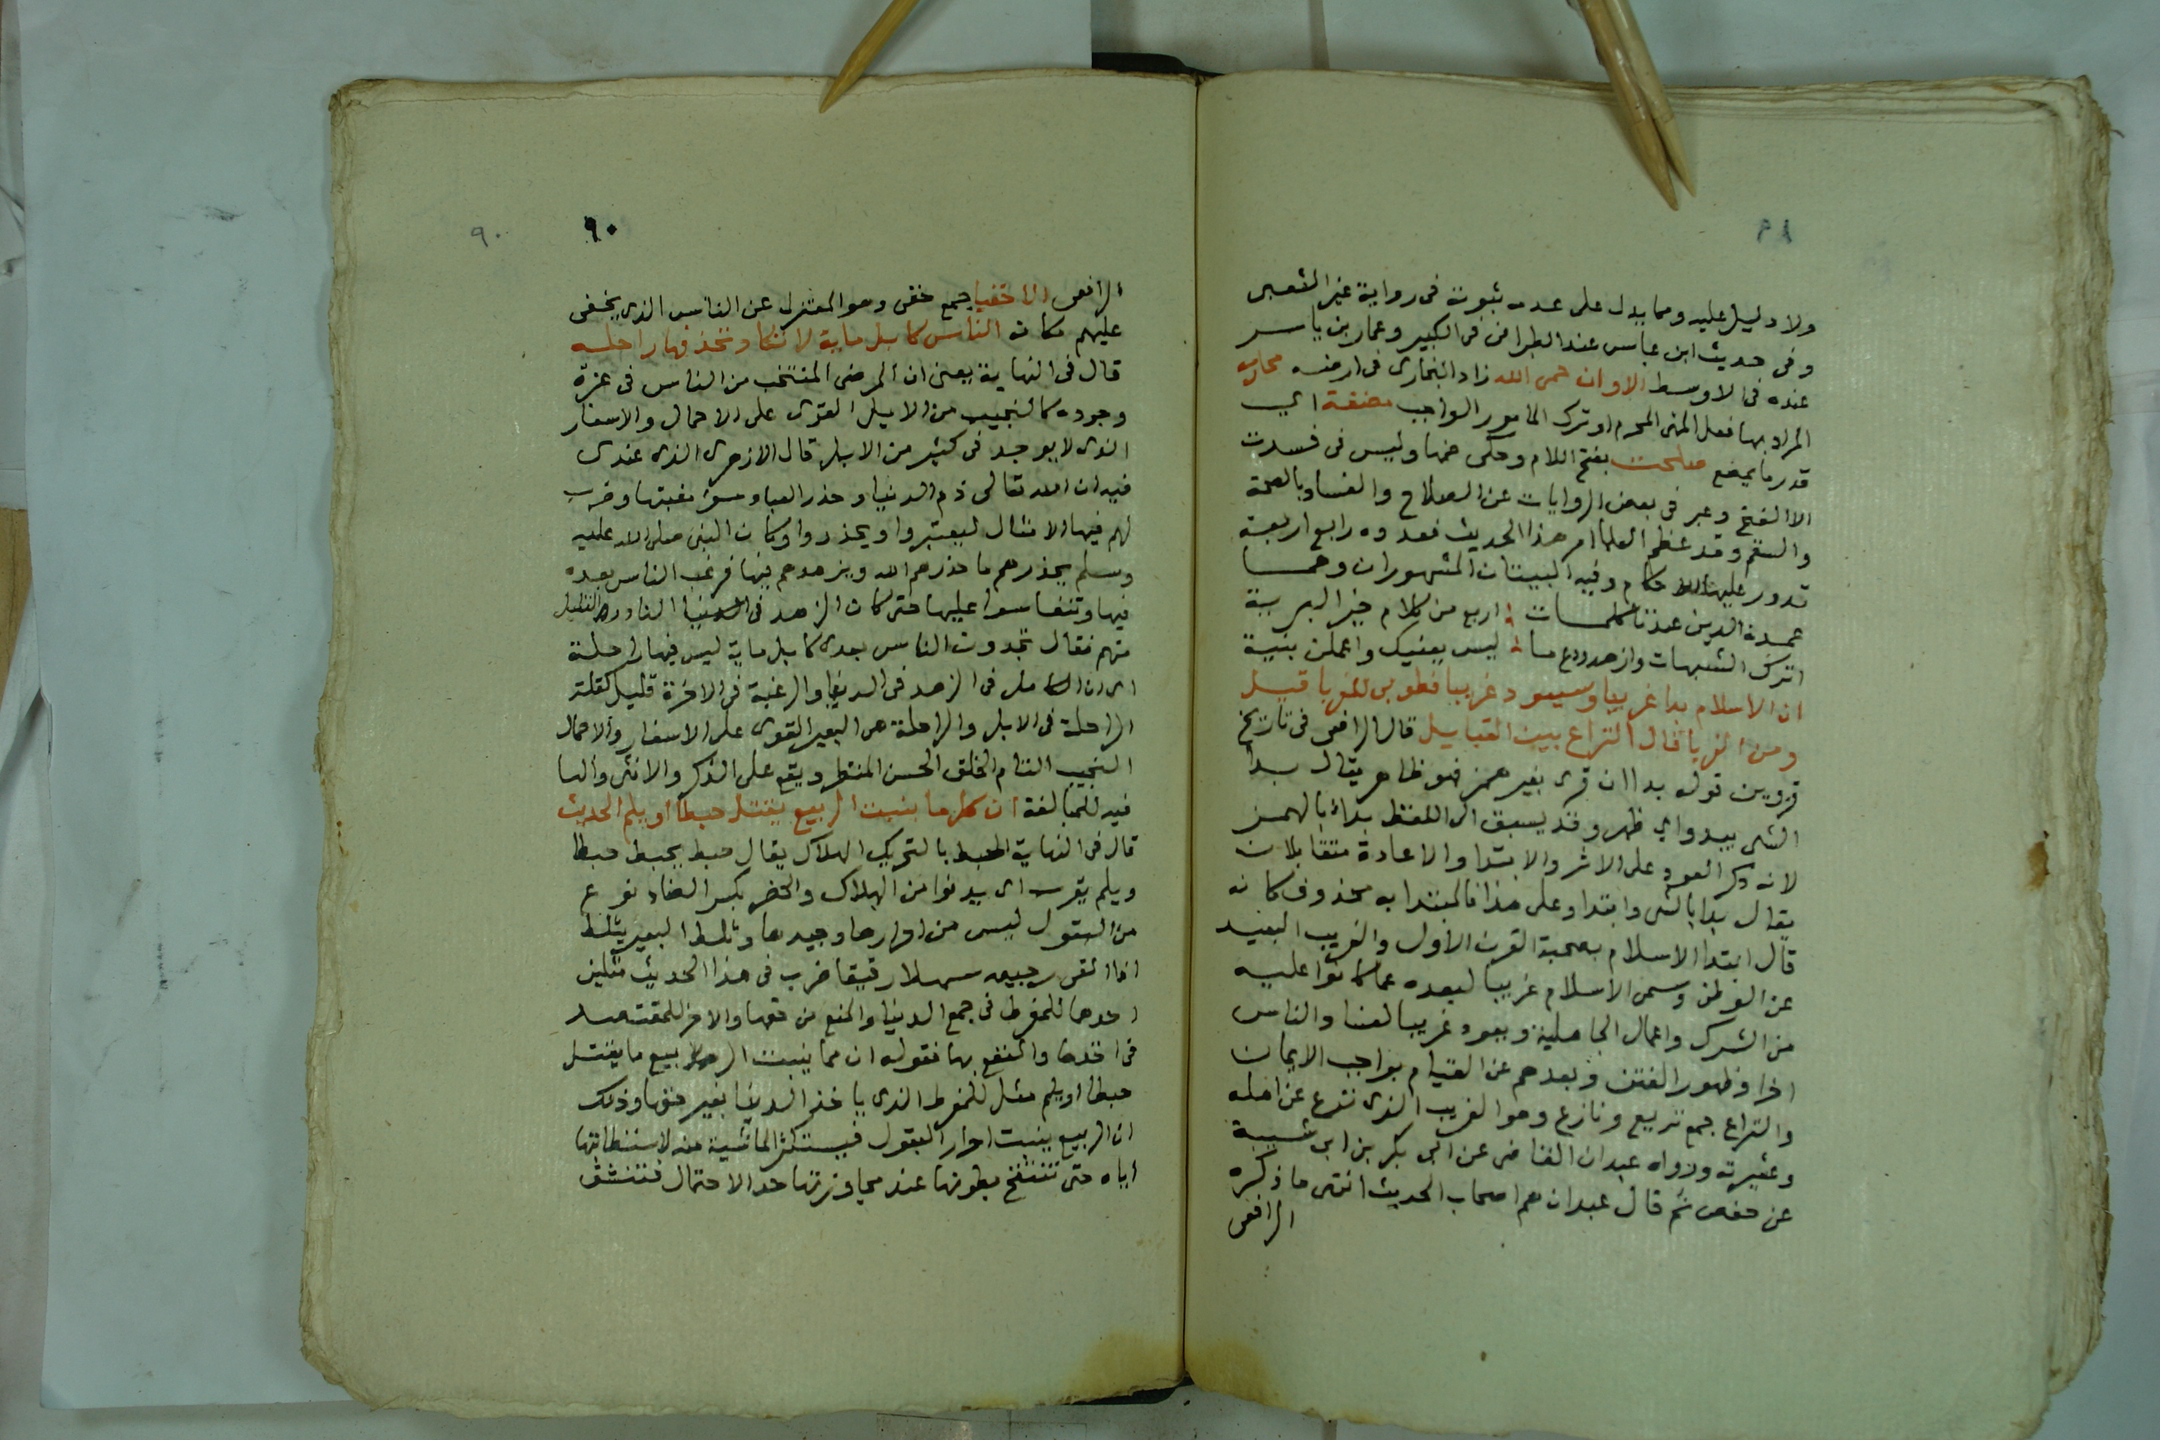 ٨٩
ولا دليل عليه ومما يدل على عدمه ثبوته فى رواية غير الشعبى
وفى حديث ابن عباس عند الطبرانى فى الكبير وعمار بن ياسر
عنده فى الاوسط الاوان حمى الله زاد البخارى فى ارضه محارمه
المراد بها فعل المنهى المحرم او ترك المامور الواجب مضغة اي
قدر ما يمضغ صلحت بفتح اللام وحكى ضمها وليس فى فسدت
الا الفتح وعبر فى بعض الروايات عن الصلاح والفساد بالصحة
والسقم وقد عظم العلما امر هذا الحديث فعدوه رابع اربعة
تدور عليها الاحكام وفيه البيتان المشهوران وهما
عمدة الدين عندنا كلمات اربع من كلام خير البرية
اترك الشبهات وازهد ودع ما ليس يعنيك واعملن بنية
ان الاسلام بدا غريبا وسيعود غريبا فطوبى للغربا قيل
ومن الغربا قال النزاع بين القبايل قال الرافعى فى تاريخ
قزوين قوله بدا ان قرى بغير همز فهو ظاهر يقال بدا
الشى يبدو اي ظهر وقد يسبق الى اللفظ بداء بالهمز
لانه ذكر العود على الاثر والابتدا والاعادة متقابلان
يقال بدا بالشى وابتدا وعلى هذا فالمبتدا به محذوف كانه
قال ابتدا الاسلام بصحبة القرن الاول والغريب البعيد
عن الوطن وسمى الاسلام غريبا لبعده عما كانوا عليه
من الشرك واعمال الجاهلية ويعود غريبا لفساد الناس
اخرا وظهور الفتن وبعدهم عن القيام بواجب الايمان
والنزاع جمع نزيع ونازع وهو الغريب الذى نزع عن اهله
وعشيرته ورواه عبدان القاضى عن ابى بكر بن ابى شيبة
عن حفص ثم قال عبدان هم اصحاب الحديث انتهى ما ذكره
الرافعى
٩٠
٩٠
الرافعى الاخفيا جمع خفى وهو المعتزل عن الناس الذى يخفى
عليهم مكانه الناس كابل ماية لا تكاد تجد فيها راحلة
قال فى النهاية يعنى ان المرضى المنتخب من الناس فى عزة
وجوده كالنجيب من الابل القوى على الاحمال والاسفار
الذى لا يوجد فى كثير من الابل قال الازهرى الذى عندى
فيه ان الله تعالى ذم الدنيا وحذر العباد سوء مغبتها وضرب
لهم فيها الامثال ليعتبروا ويحذروا وكان النبى صلى الله عليه
وسلم يحذرهم ما حذرهم الله ويزهدهم فيها فرغب الناس بعده
فيها وتنافسوا عليها حتى كان الزهد فى الدنيا النادر القليل
منهم فقال تجدون الناس بعدى كابل ماية ليس فيها راحلة
اى ان الكامل فى الزهد فى الدنيا والرغبة فى الاخرة قليل كقلة
الراحلة فى الابل والراحلة هى البعير القوى على الاسفار والاحمال
النجيب التام الخلق الحسن المنظر ويقع على الذكر والانثى والها
فيه للمبالغة ان كل ما ينبت الربيع يقتل حبطا او يلم الحديث
قال فى النهاية الحبط بالتحريك الهلاك يقال حبط يحبط حبطا
ويلم يقرب اى يدنوا من الهلاك والخضر بكسر الضاد نوع
من البقول ليس من احرارها وجيدها وثلط البعير يثلط
اذا القى رجيعه سهلا رقيقا ضرب فى هذا الحديث مثلين
احدهما للمفرط فى جمع الدنيا والمنع من حقها والاخر للمقتصد
فى اخذها والنفع بها فقوله ان مما ينبت الربيع ما يقتل
حبطا او يلم مثل للمفرط الذى ياخذ الدنيا بغير حقها وذلك
ان الربيع ينبت احرار البقول فيستكثر الماشية منه لاستطابتها
اياه حتى تنتفخ بطونها عند مجاوزتها حد الاحتمال فتنشق